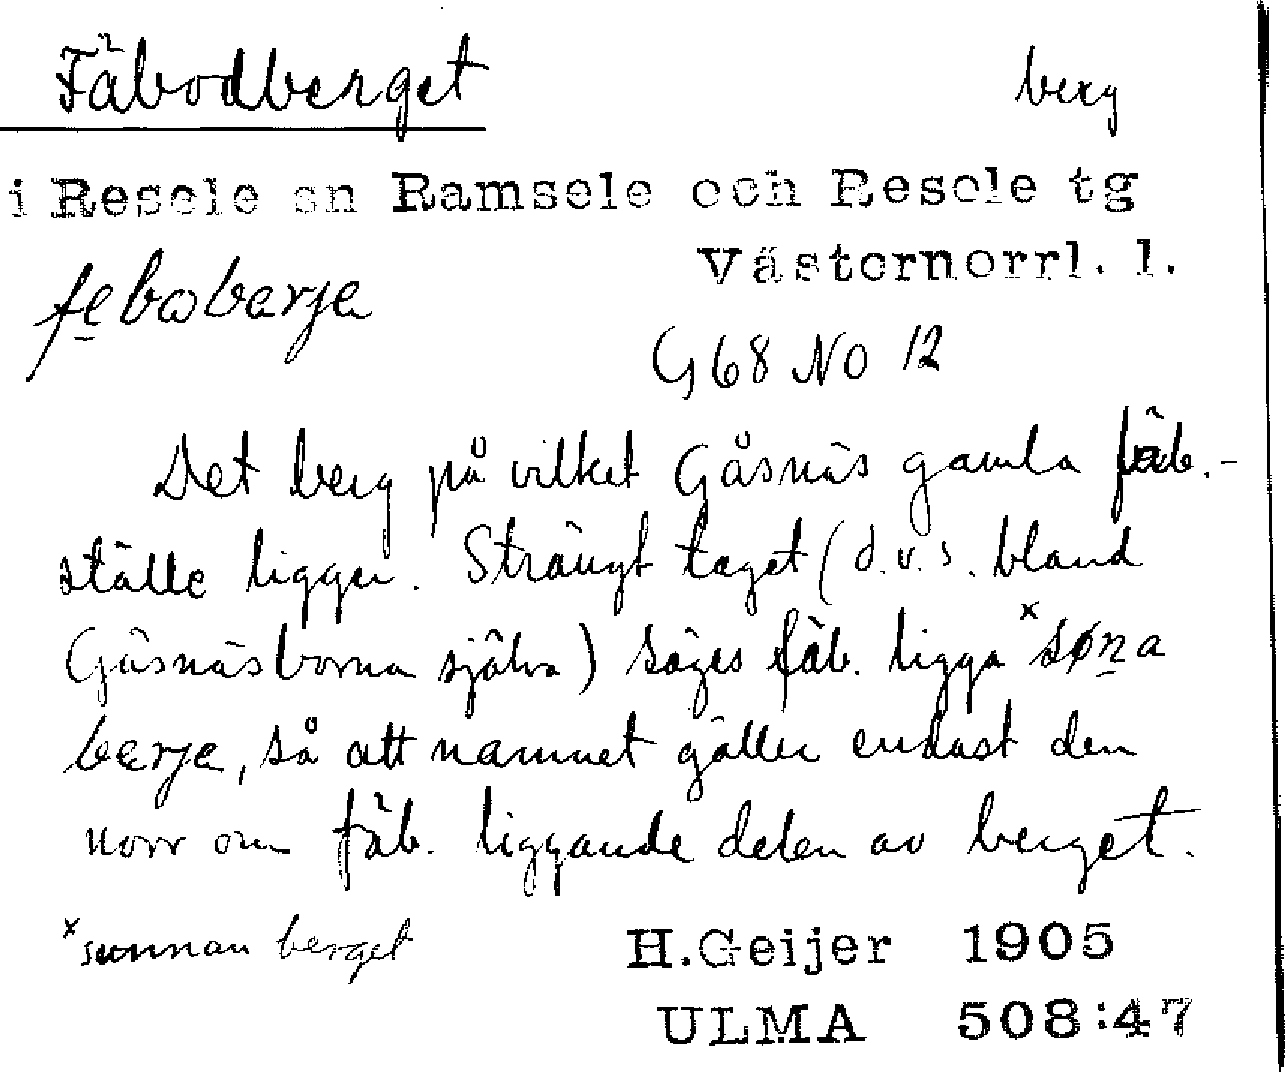 Fäbodberget berg
i Resele sn Ramsele och Resele tg
Västernorrl. l.
fe̲bobærjɐ
G68 NO 12
Det berg på vilket Gåsnäs gamla fäb.-
ställe ligger. Strängt taget (d.v.s. bland
Gåsnäsborna själva) säges fäb. ligga ˣsøn̲a
bærjɐ, så att namnet gäller endast den
norr om fäb. liggande delen av berget.
ˣsunnan berget
H.Geijer 1905
ULMA 508:47